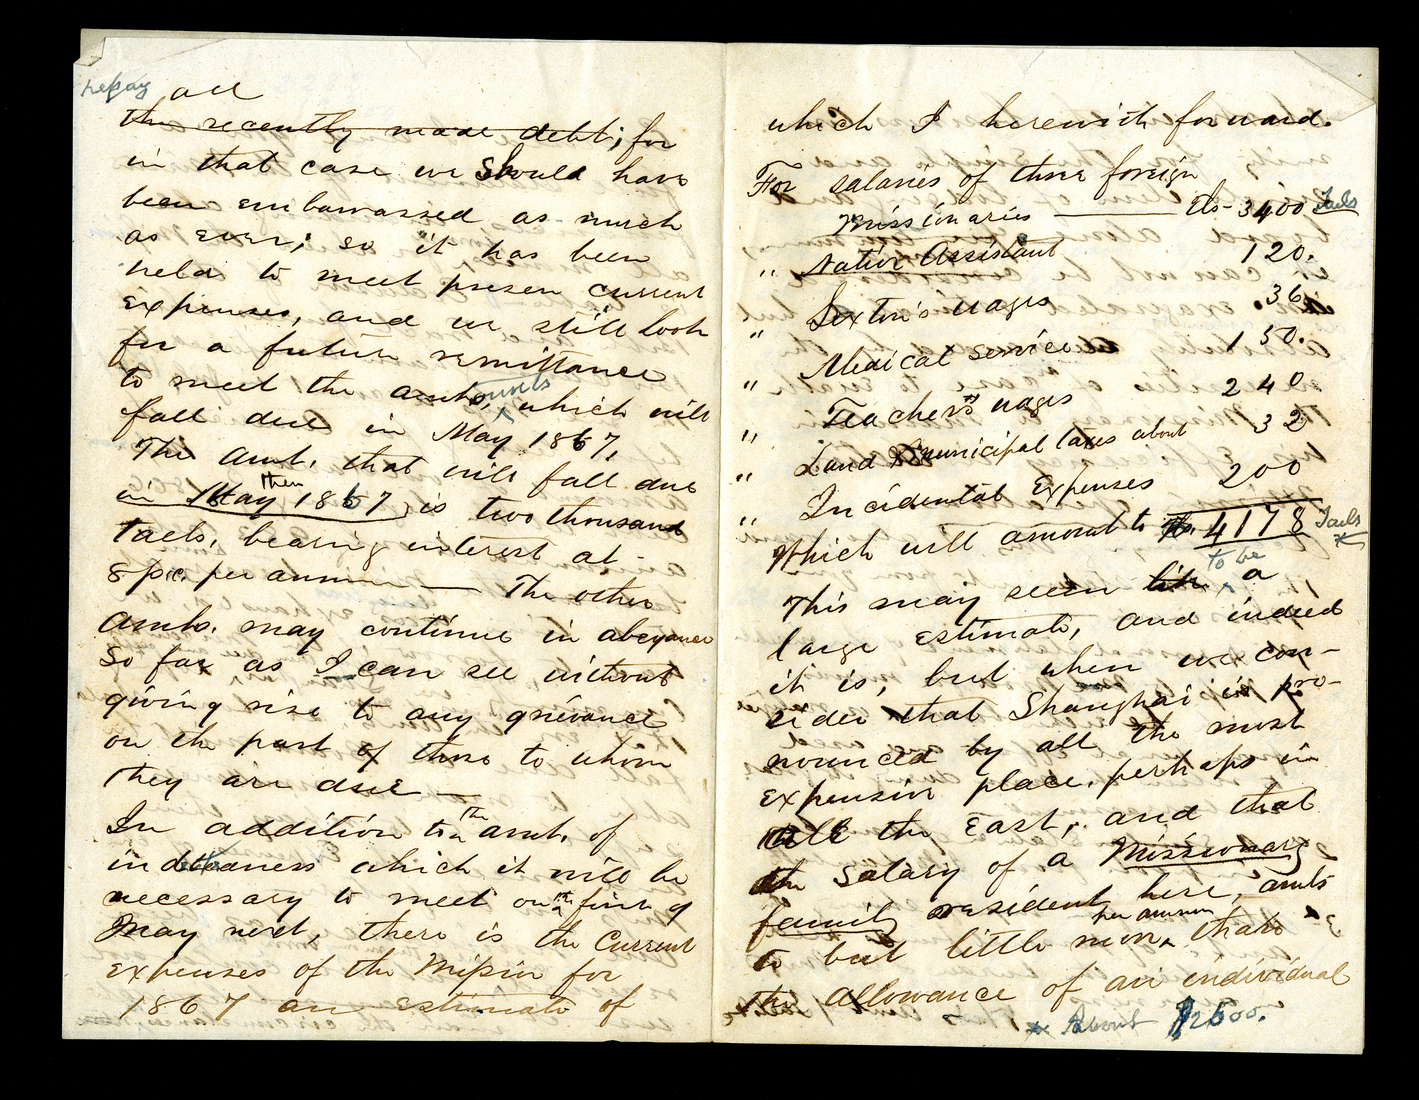 repay all
the recently made debt; for
in that case we should have
been embarrassed as much
as ever; so it has been
held to meet presen current
expenses, and we still look
for a future remittance
to meet the amts, ounts which will
fall due in May 1867,
The amt. that will fall due
in May then 1867, is two thousand
taels, bearing interest at
8 pc. per annum — The other
amts. may continue in abeyance
so far as I can see without
giving rise to any grievance
on the part of those to whom
they are due —
In addition to the amt. of
indebtedness which it will be
necessary to meet on the first of
May next, there is the current
expenses of the Mission for
1867 an estimate of
which I herewith forward.
For salaries of three foreign
Missionaries — Tls- 3400 Taels
" Native Assistant 120.
" Sexton's wages 36.
" Medical service 150.
" Teacher's wages 240
" Land & municipal taxes about 32
" Incidental Expenses 200
Which will amount to Tls. 4178 Taels
This may seem like to be a
large estimate, and indeed
it is, but when we con-
sider that Shanghai is pro-
nounced by all the most
expensive place, perhaps in
all the East, and that
the salary of a Missionary
family resident here, amts
to but little more per annum than
the allowance of an individual
x About $2600.